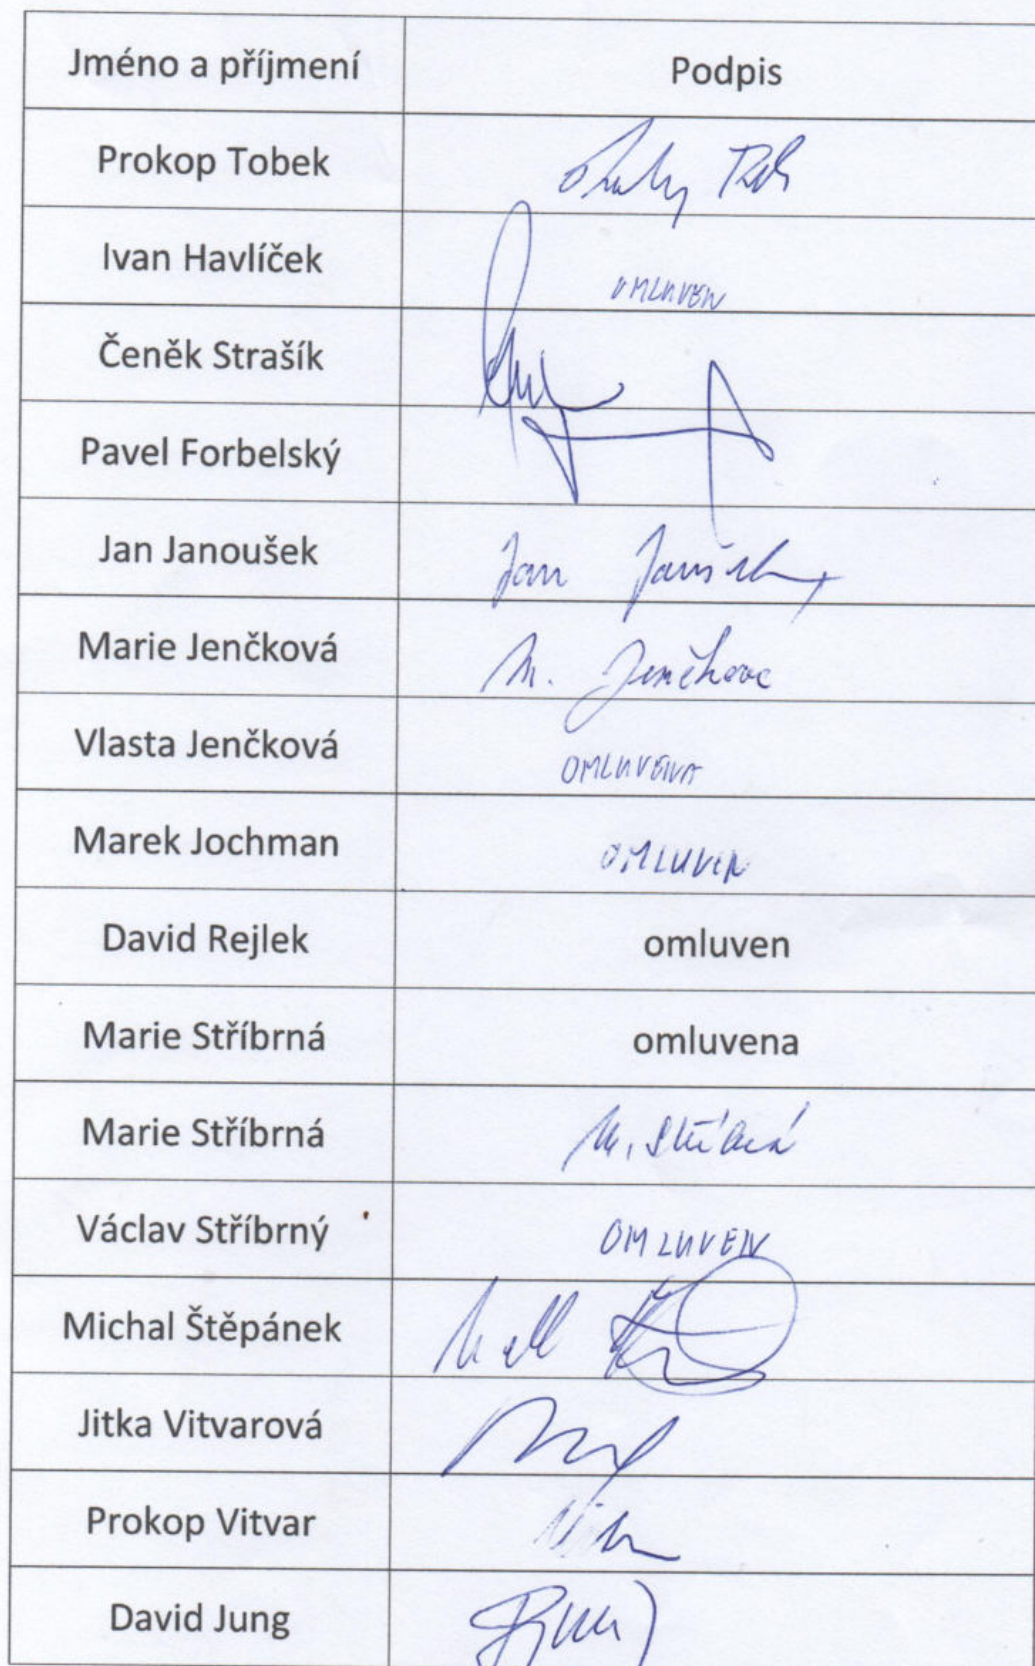 Jméno a příjmení Podpis
Prokop Tobek
Ivan Havlíček OMLUVEN
Čeněk Strašík
Pavel Forbelský
Jan Janoušek Jan
Marie Jenčková M. Jenčková
Vlasta Jenčková OMLUVENA
Marek Jochman OMLUVEN
David Rejlek omluven
Marie Stříbrná omluvena
Marie Stříbrná M. Stříbrná
Václav Stříbrný OMLUVEN
Michal Štěpánek
Jitka Vitvarová
Prokop Vitvar
David Jung